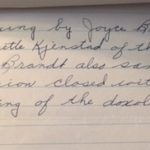 ung by Joyce
ette Kjenstad of th
Brandt also san
ion closed with
ing of the doxol